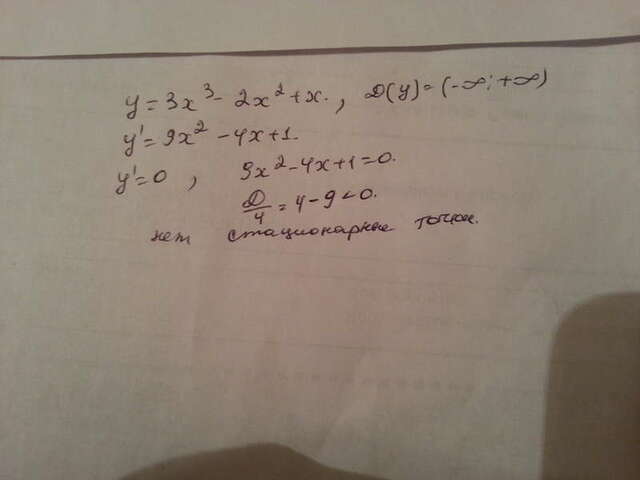 y = 3x³ - 2x² + x. , D(y) = (-∞; +∞)
y' = 9x² - 4x + 1.
y' = 0 , 9x² - 4x + 1 = 0.
D/4 = 4 - 9 < 0.
нет стационарных точек.